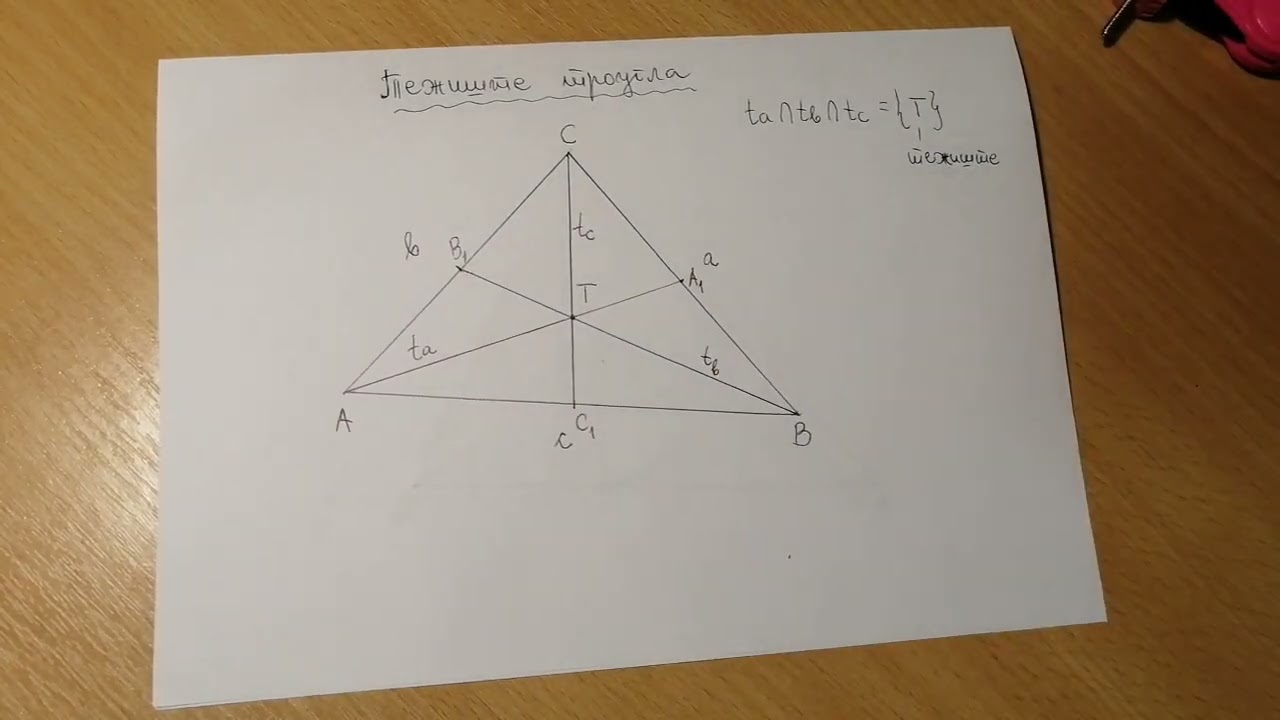 Тежиште троугла
ta∩tв∩tc = {T}
тежиште
C
tc
в B₁
a
A₁
T
ta
tв
A
C₁
c
B